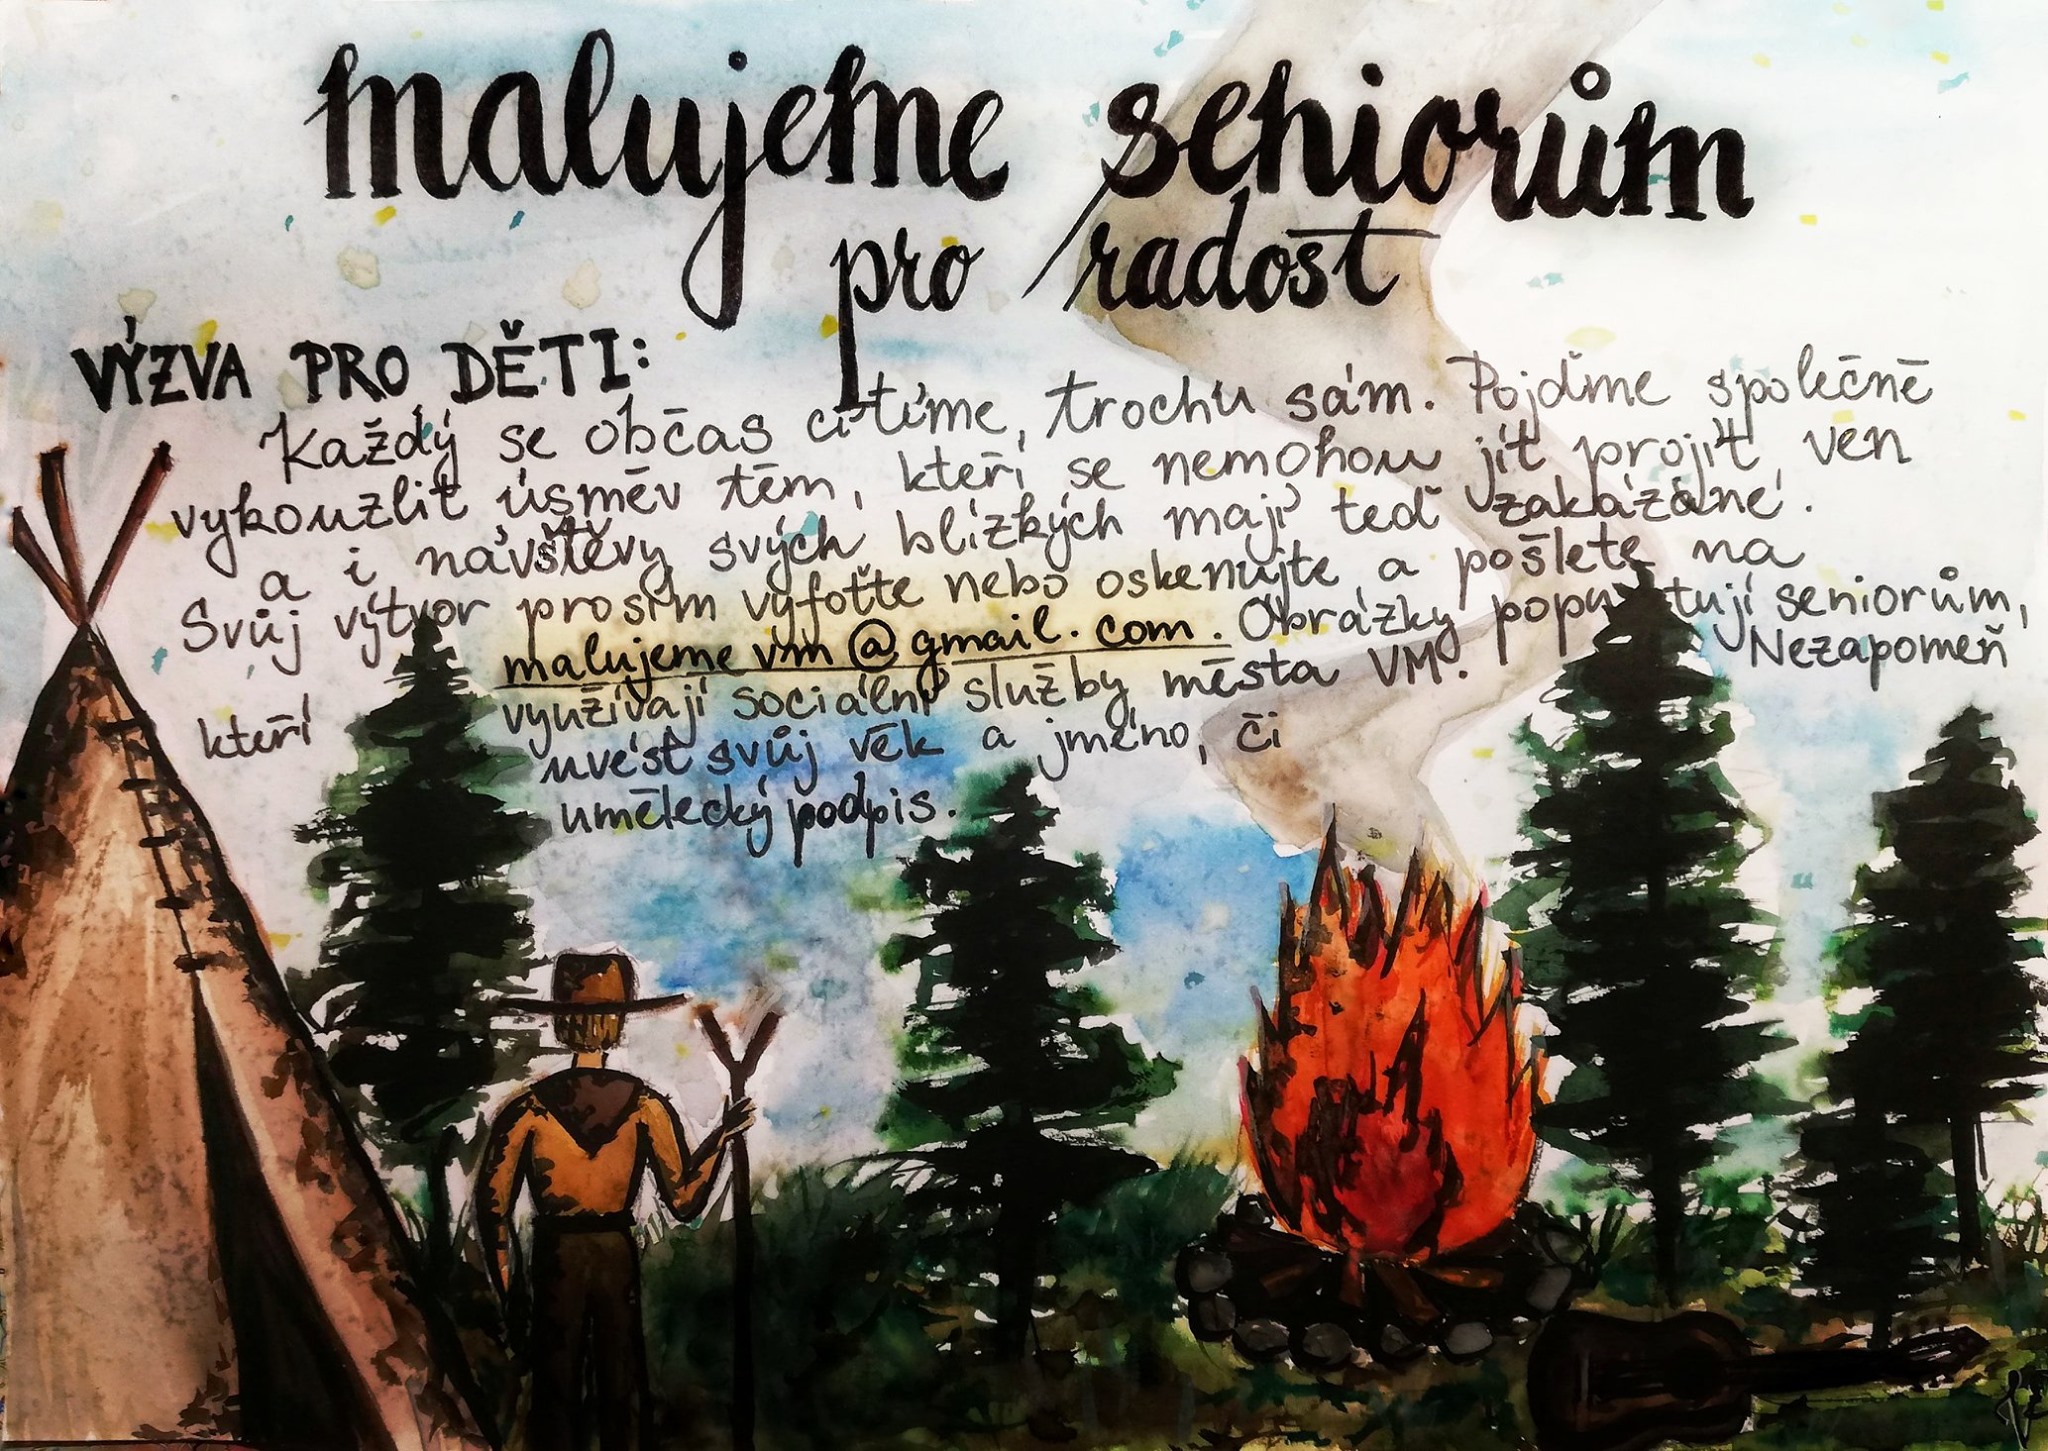 malujeme seniorům
pro radost
VÝZVA PRO DĚTI:
Každý se občas cítíme, trochu sám. Pojďme společně
vykouzlit úsměv těm, kteří se nemohou jít projít ven
a i návštěvy svých blízkých mají teď zakázané.
Svůj výtvor prosím vyfoťte nebo oskenujte a pošlete na
malujeme vm@gmail.com. Obrázky poputují seniorům,
kteří využívají sociální služby města VM. Nezapomeň
uvést svůj věk a jméno, či
umělecký podpis.